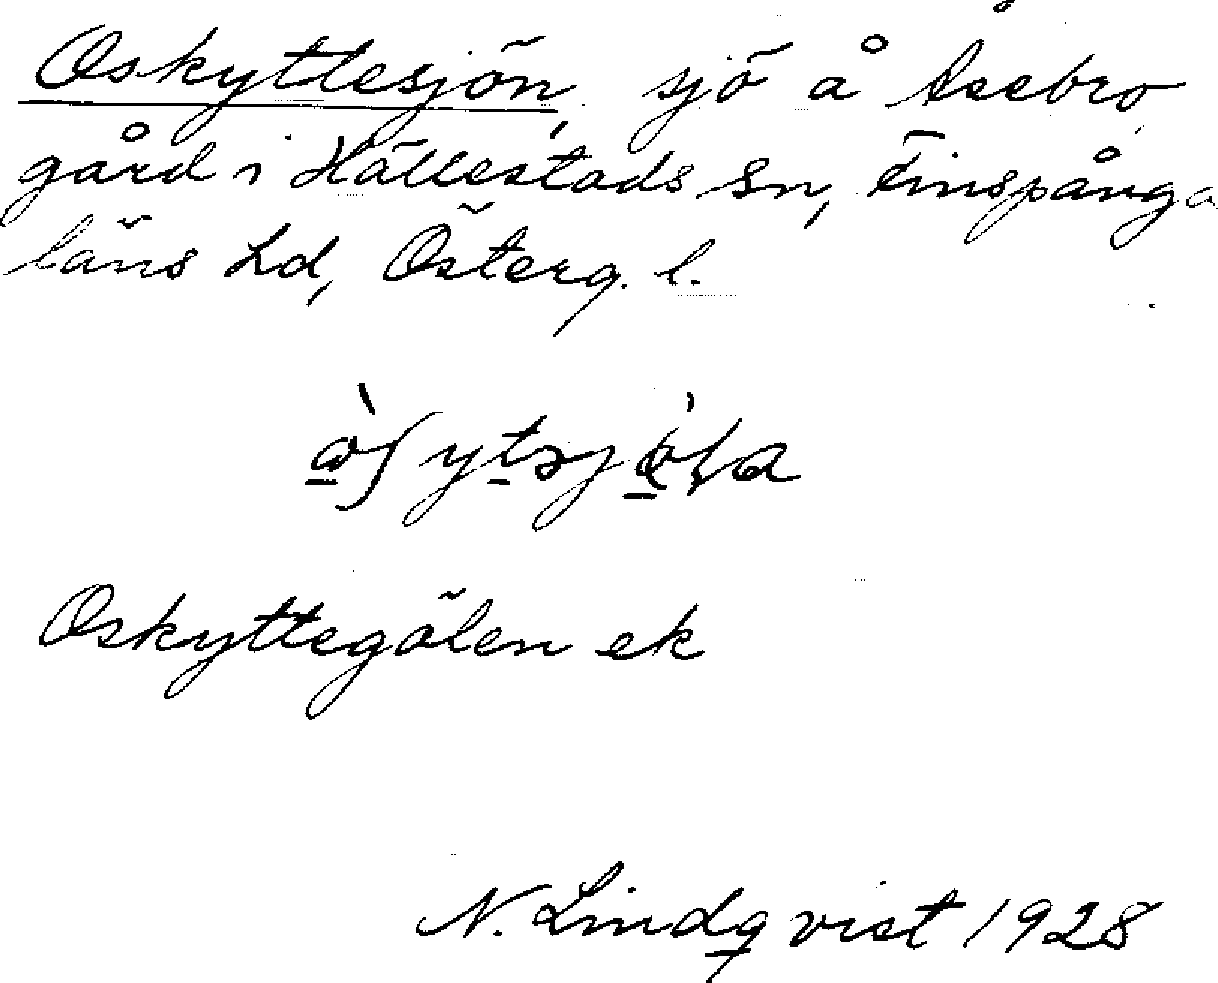 Oskyttesjön, sjö å Åsebro
gård i Hällestads sn, Finspånga
läns hd, Österg. l.
Oskyttegölen ek
N. Lindqvist 1928